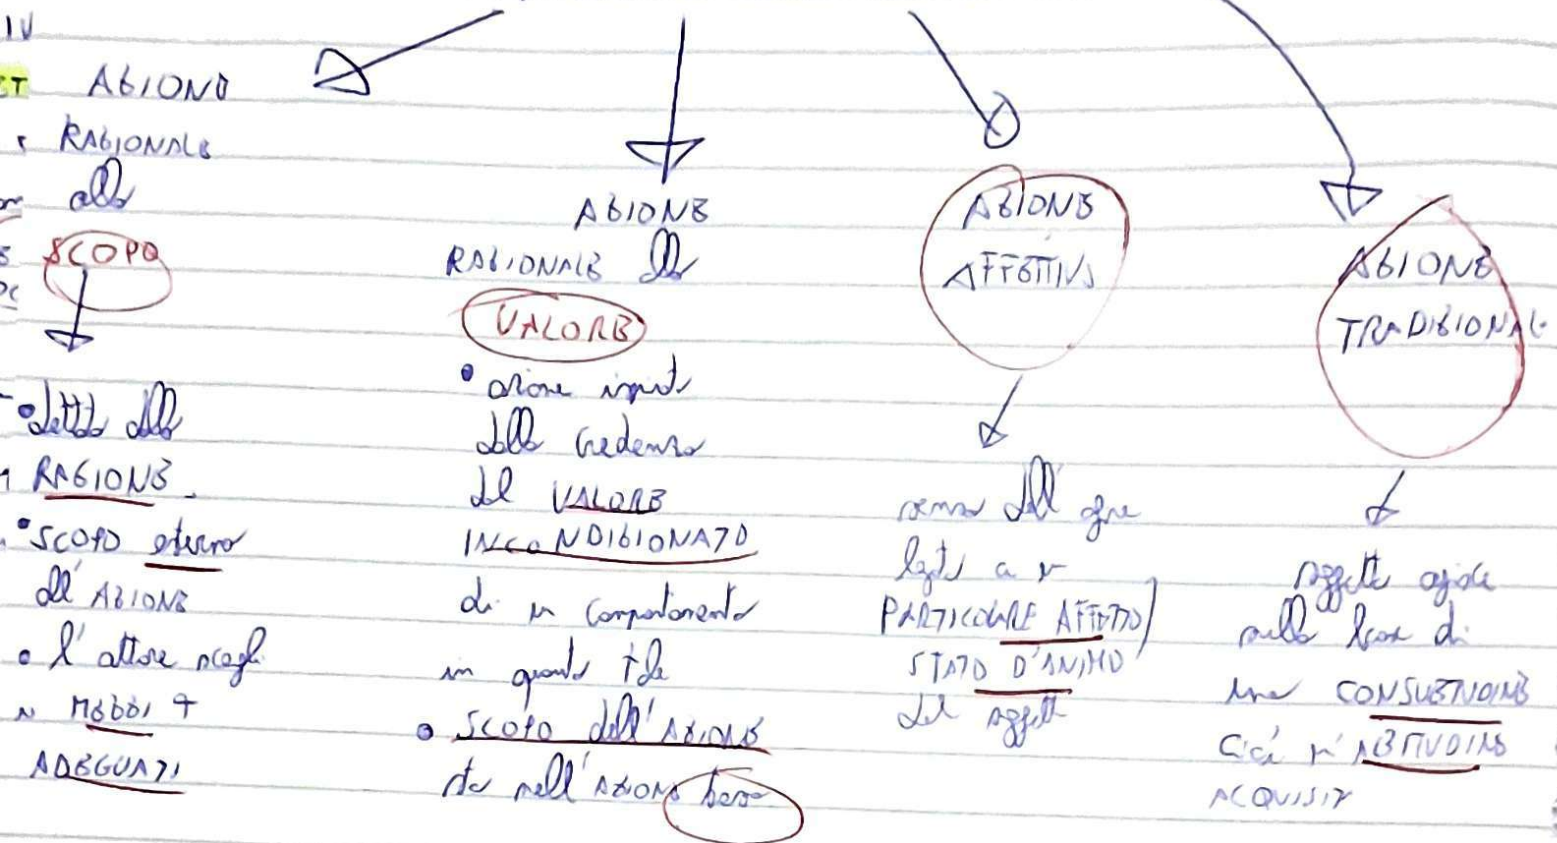 IV
ET
AZIONE
RAZIONALE
allo
SCOPO
• dettata dalla
RAGIONE
• SCOPO esterno
all'AZIONE
• l'attore scegli
MEZZI +
ADEGUATI
AZIONE
RAZIONALE al
VALORE
• azione ispirata
dalla credenza
del VALORE
INCONDIZIONATO
di un comportamento
in quanto tale
• SCOPO dell'AZIONE
sta nell'AZIONE stessa
AZIONE
AFFETTIVA
senso dell'agire
legato a un
PARTICOLARE AFFETTO/
STATO D'ANIMO
del soggetto
AZIONE
TRADIZIONALE
soggetto agisce
sulla base di
una CONSUETUDINE
cioè un'ABITUDINE
ACQUISITA